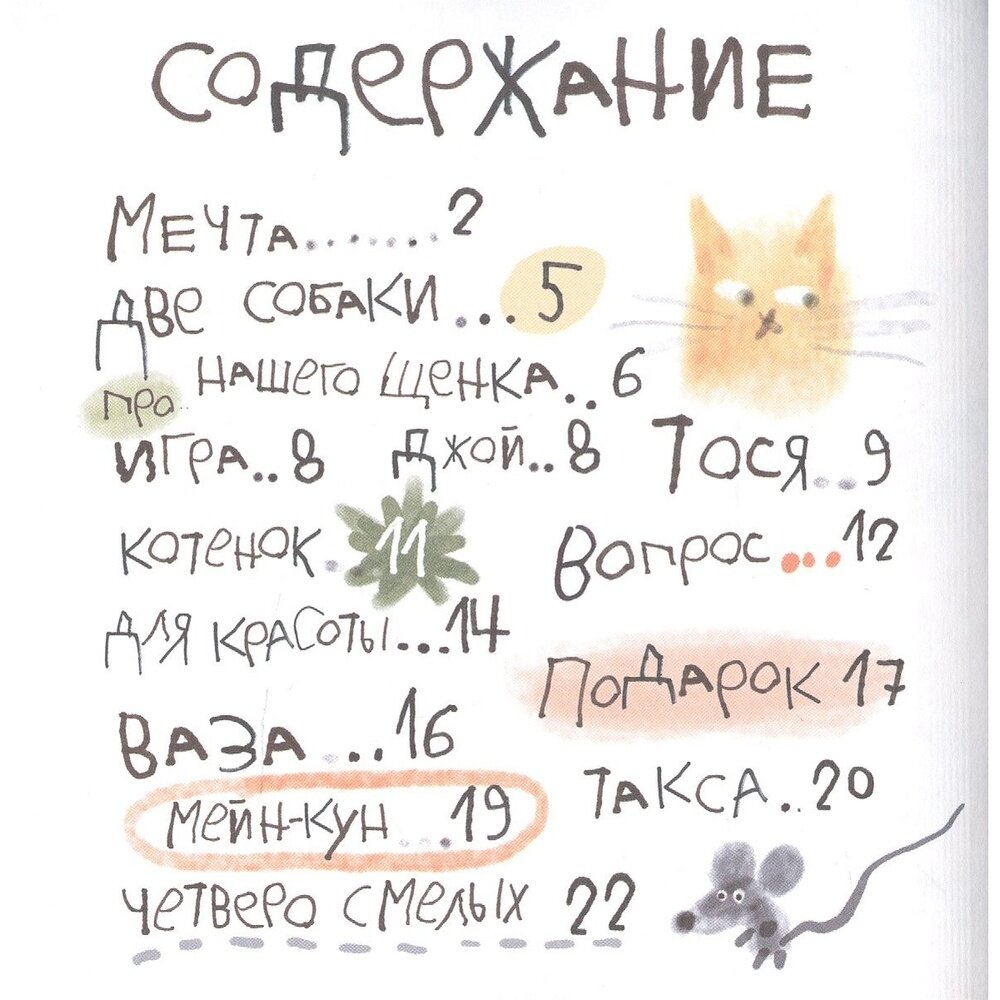 СОДЕРЖАНИЕ
Мечта........2
Две собаки...5
про нашего щенка..6
Игра..8 Джой..8 Тося..9
Котенок.11 Вопрос...12
Для красоты...14
Подарок 17
Ваза...16
Такса..20
Мейн-кун...19
Четверо смелых 22